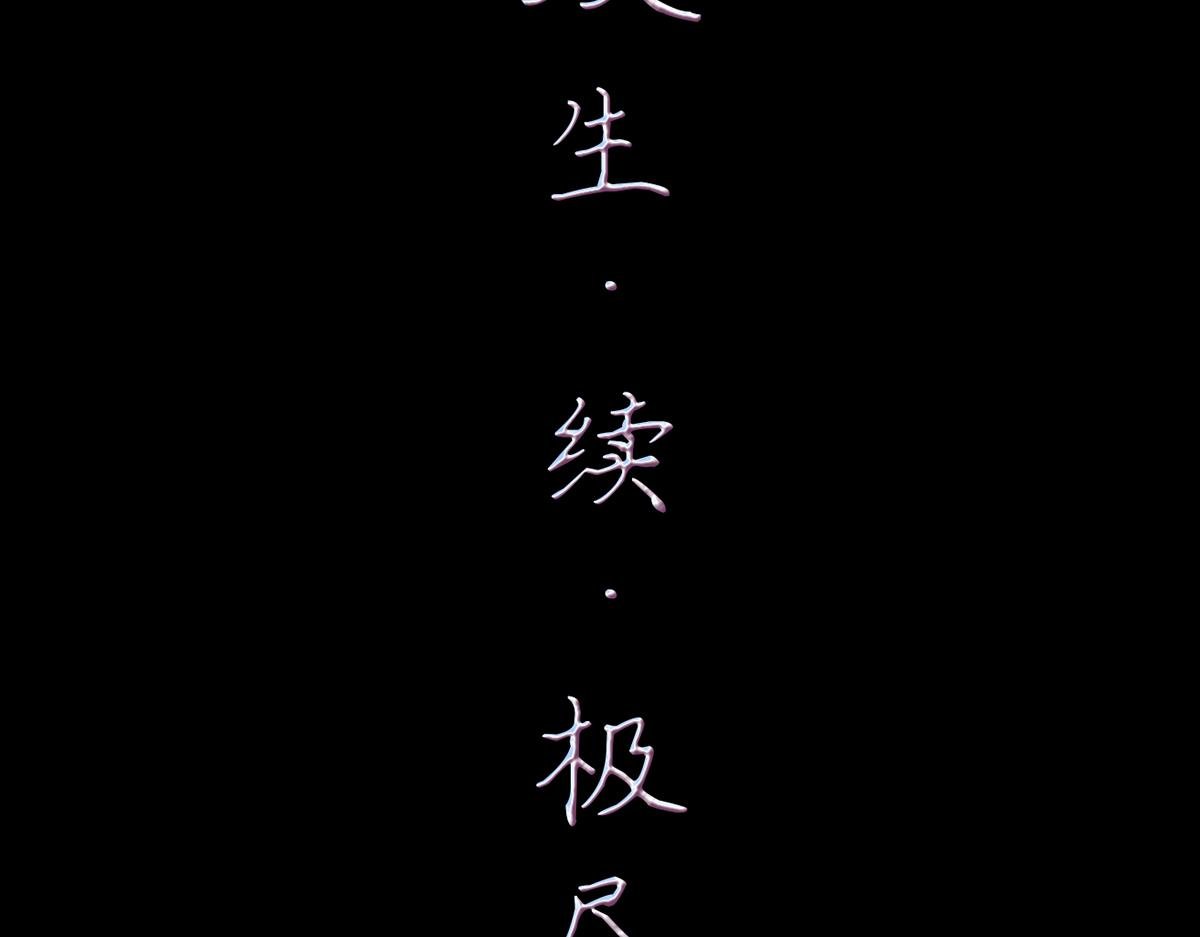 生·续·极